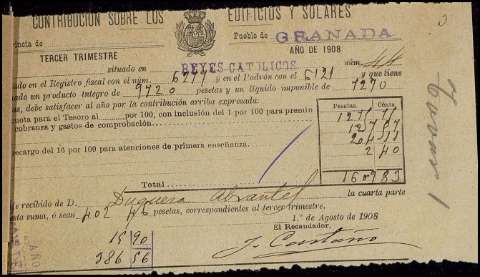 CONTRIBUCIÓN SOBRE LOS EDIFICIOS Y SOLARES
incia de Pueblo de GRANADA
TERCER TRIMESTRE AÑO DE 1908
situado en REYES CATOLICOS núm. 44
ado en el Registro fiscal con el núm. 6277 y en el Padrón con el 6121 y que tiene
nado un producto íntegro de 9720 pesetas y un líquido imponible de 7290
as, debe satisfacer al año por la contribución arriba expresada:
Pesetas Cénts.
uota para el Tesoro al por 100, con inclusión del 1 por 100 para premio
cobranza y gastos de comprobación
ecargo del 16 por 100 para atenciones de primera enseñanza.
2 40
Total
He recibido de D. Duquesa Abrantes la cuarta parte
esta suma, ó sean 402 46 pesetas, correspondientes al tercer trimestre.
1.º de Agosto de 1908
El Recaudador,
15 90
386 56
J. Castaño
AÑO